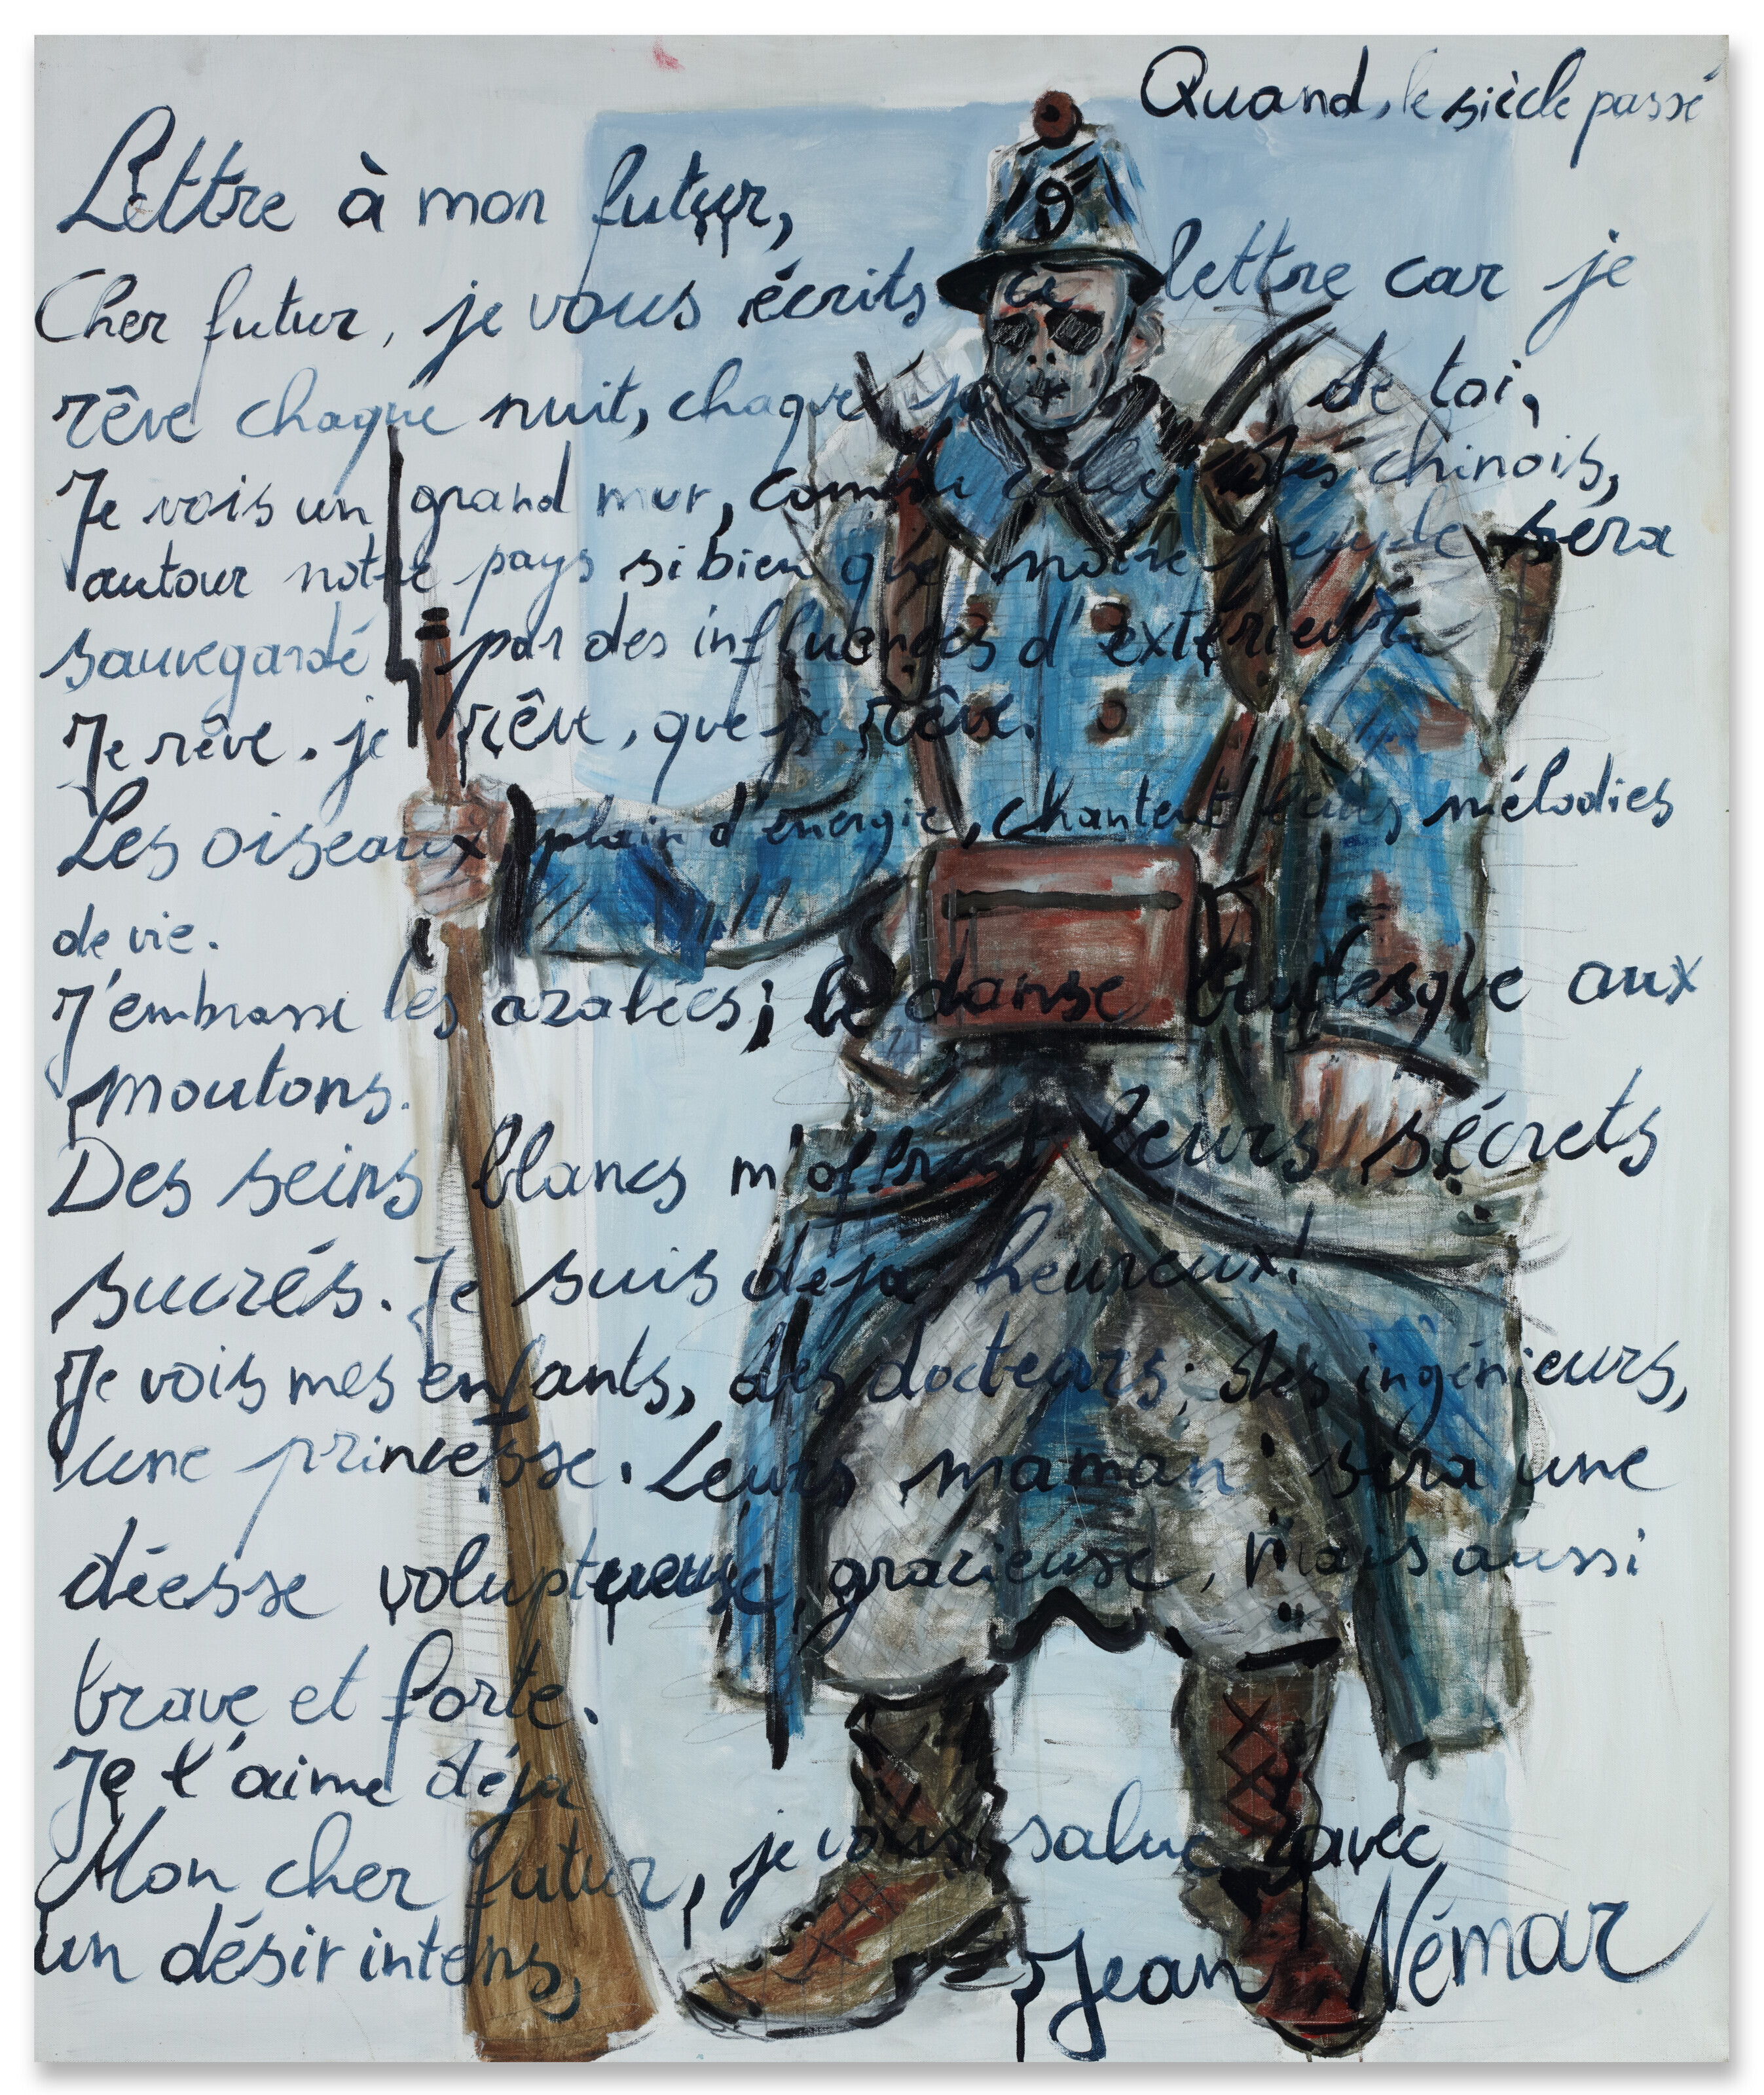 Quand, le siècle passé
Lettre à mon futur,
Cher futur, je vous écrits ce lettre car je
rêve chaque nuit, chaque de toi,
Je vois un grand mur, comme celui des chinois,
autour notre pays si bien que notre peuple séra
sauvegardé par des influences d'extérieur.
Je rêve. je rêve, que je rêve.
Les oiseaux, plain d'énergie, chantent leurs mélodies
de vie.
J'embrasse les azalées; le danse burlesque aux
moutons.
Des seins blancs m'offrent leurs sécrets
sucrés. Je suis déja heureux!
Je vois mes enfants, des docteurs; des ingénieurs,
une princesse. Leurs maman séra une
déesse voluptueuse, gracieuse, mais aussi
brave et forte.
Je t'aime déja
Mon cher futur, je vous salue avec
un désir intens,
Jean Némar
9